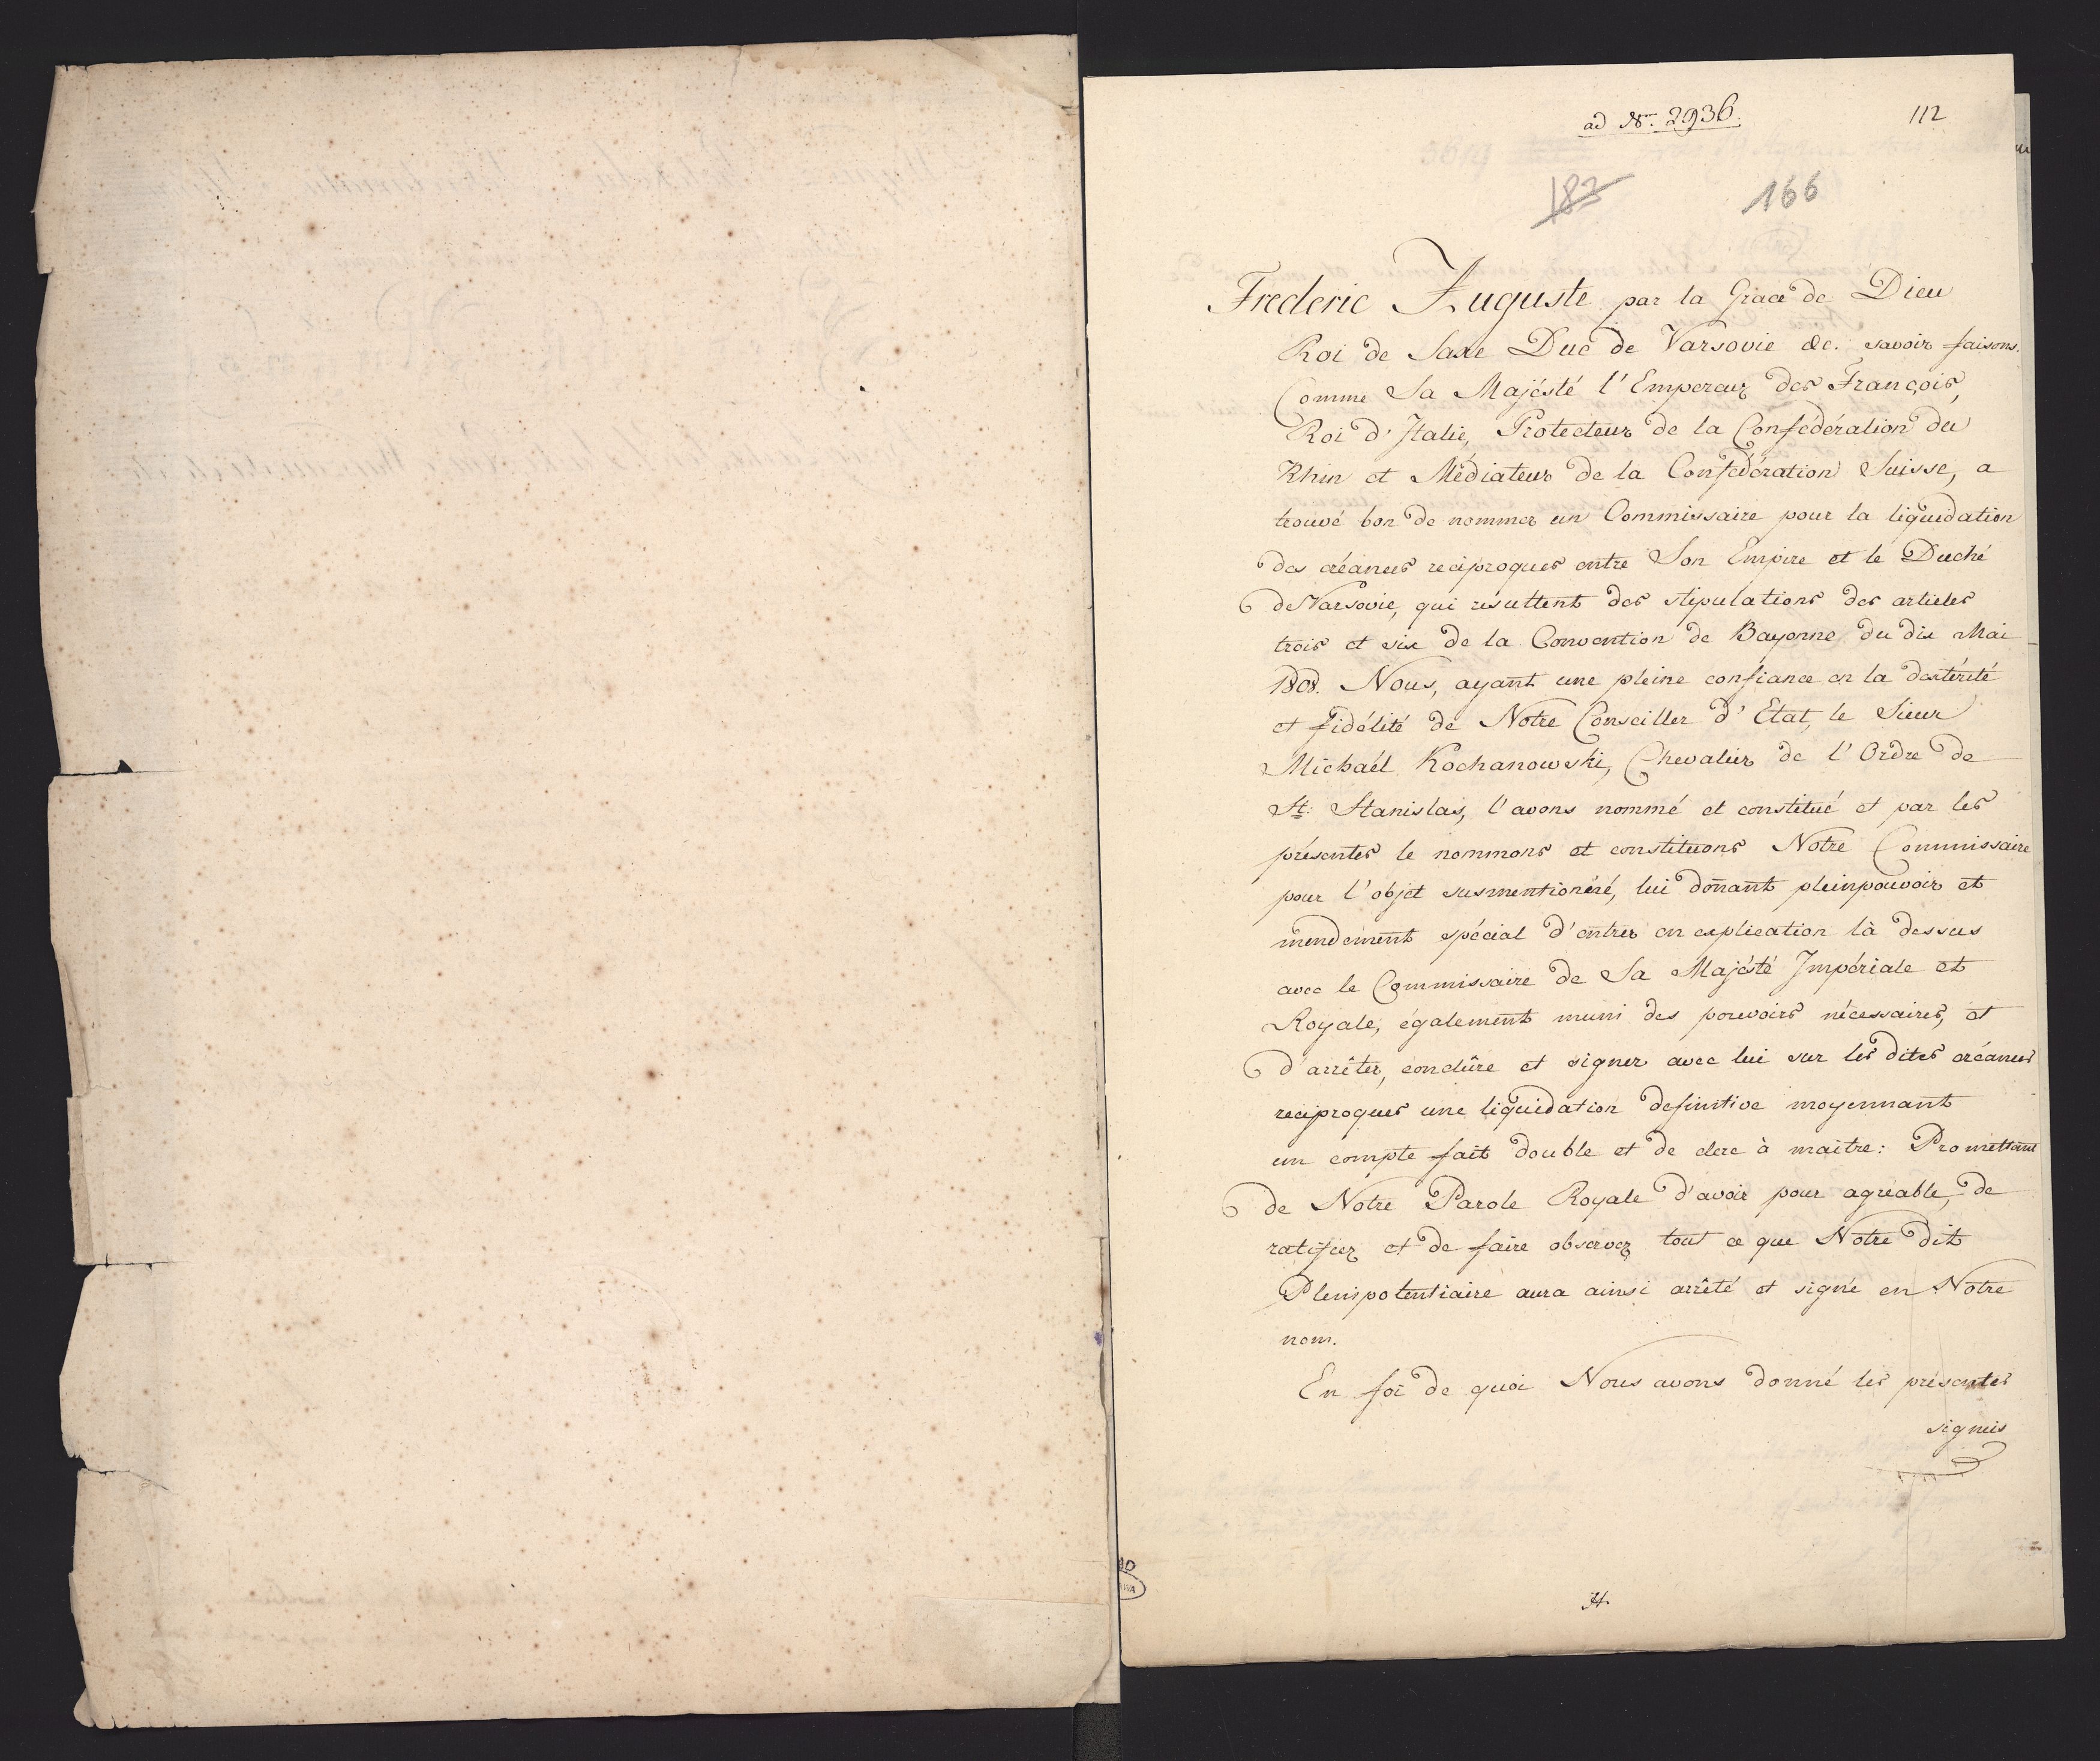 ad Nr. 2936.
112
183
166
Frederic Auguste par la Grace de Dieu
Roi de Saxe Duc de Varsovie &c. savoir faisons.
Comme Sa Majésté l'Empereur des François,
Roi d'Italie, Protecteur de la Confédération du
Rhin et Médiateur de la Confédération Suisse, a
trouvé bon de nommer un Commissaire pour la liquidation
des créances reciproques entre Son Empire et le Duché
de Varsovie, qui résultent des stipulations des articles
trois et six de la Convention de Bayonne du dix Mai
1808. Nous, ayant une pleine confiance en la dextérité
et fidélité de Notre Conseiller d'Etat, le Sieur
Michaél Kochanowski, Chevalier de l'Ordre de
St: Stanislas, l'avons nommé et constitué et par les
présentes le nommons et constituons Notre Commissaire
pour l'objet susmentionéné, lui donnant pleinpouvoir et
mendement spécial d'entrer en explication là dessus
avec le Commissaire de Sa Majésté Impériale et
Royale, également muni des pouvoirs nécessaires, et
d'arrêter, conclûre et signer avec lui sur les dites créances
reciproques une liquidation definitive moyennant
un compte fait double et de clerc à maitre: Promettant
de Notre Parole Royale d'avoir pour agréable, de
ratifier et de faire observer tout ce que Notre dit
Plenipotentiaire aura ainsi arrêté et signé en Notre
nom.
En foi de quoi Nous avons donné les présentes
signeés